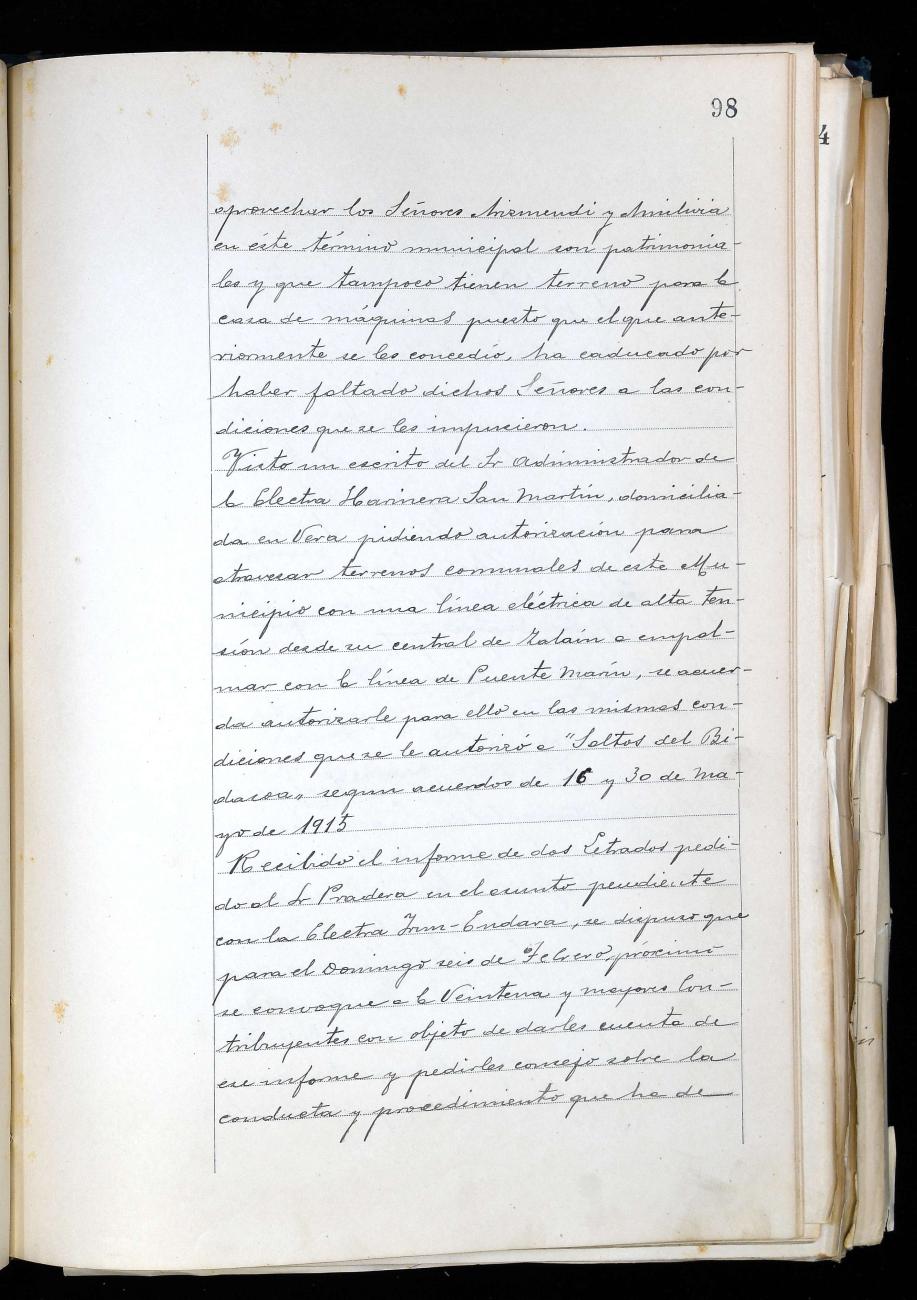 98
4
aprovechar los Señores Arizmendi y Amilivia
en éste término municipal son patrimonia-
les y que tampoco tienen terreno para la
casa de máquinas puesto que el que ante-
riormente se les concedió, ha caducado por
haber faltado dichos Señores a las con-
diciones que se les impusieron.
Visto un escrito del Sr Administrador de
la Electra Harinera San Martín, domicilia-
da en Vera pidiendo autorización para
atravesar terrenos comunales de este Mu-
nicipio con una línea eléctrica de alta ten-
sión desde su central de Zalain a empal-
mar con la línea de Puente Marín, se acuer-
da autorizarle para ello en las mismas con-
diciones que se le autorizó a "Saltos del Bi-
dasoa„ segun acuerdos de 16 y 30 de Ma-
yo de 1915
Recibido el informe de dos Letrados pedi-
do al Sr Pradera en el asunto pendiente
con la Electra Irun-Endara, se dispuso que
para el Domingo seis de Febrero, próximo
se convoque a la Veintena y mayores Con-
tribuyentes con objeto de darles cuenta de
ese informe y pedirles consejo sobre la
conducta y procedimiento que ha de